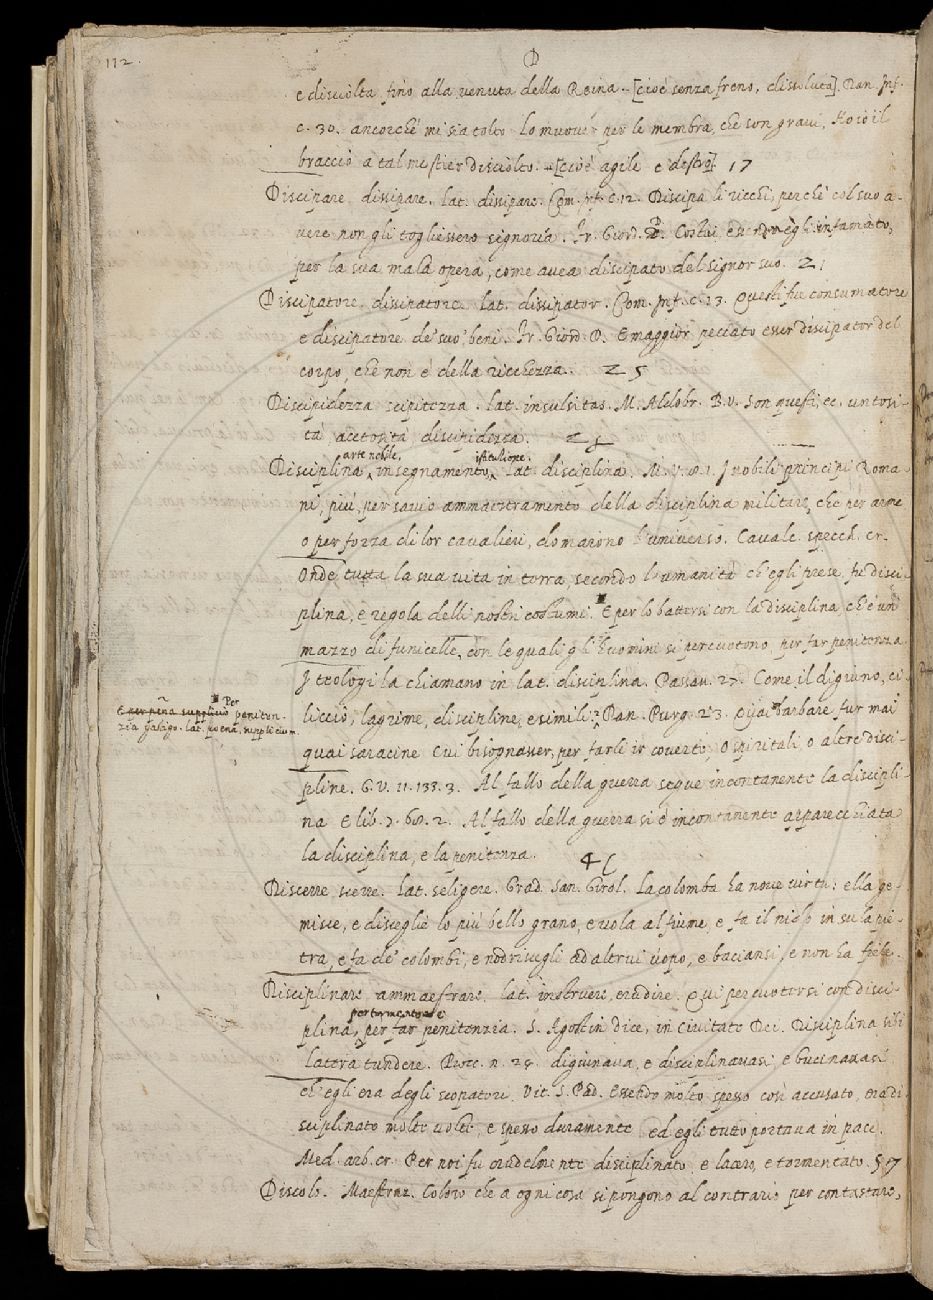 112.
D
e disciolta fino alla venuta della Reina. [cioè senza freno, dissoluta]. Dan. Inf.
c. 30. ancorchè mi sia tolto Lo muover per le membra, che son gravi, Ho io il
braccio a tal mestier disciolto. [cioè agile e destro]. 17
Discipare, dissipare. lat. dissipare. Com. Inf. c. 12. Discipa li ricchi, perchè col suo a-
vere non gli togliessero signoria. Fr. Giord. D. Costui egli infamato,
per la sua mala opera, come avea discipato del signor suo. 21
Discipatore, dissipatore. lat. dissipator. Com. Inf. c. 13. Questi fue consumatore
e discipatore de' suo' beni. Fr. Giord. D. E maggior peccato esser discipator del
corpo, che non è della ricchezza. 25
Discipidezza scipitezza. lat. insulsitas. M. Aldobr. B.V. Son questi, ec. untosi-
tà, acetosità discipidezza.
arte nobile, istitutione.
Disciplina, insegnamento, lat. disciplina. M. V. 8. 1. I nobili principi Roma-
ni, più, per savio ammaestramento della disciplina militare, che per arme
o per forza di lor cavalieri, domarono l'universo. Cavalc. specch. cr.
Onde tutta la sua vita in terra, secondo l'umanità ch'egli prese, fu disci-
plina, e regola delli nostri costumi. E per lo battersi con la disciplina ch'è un
mazzo di funicelle, con le quali gl'huomini si percuotono per far penitenza
I teologi la chiamano in lat. disciplina. Passav. 27. Come il digiuno, ci-
E per pena supplicio Per peniten-
zia gastigo. lat. poena, supplicium.
liccio, lagrime, discipline, e simili. Dan. Purg. 23. Quai barbare fur mai
quai saracine Cui bisognasser, per farli ir coverte, O spiritali, o altre disci-
pline. G. V. 11. 133. 3. Al fallo della guerra segue incontanente la discipli-
na E lib. 7. 68. 2. Al fallo della guerra si è incontanente apparecchiata
la disciplina, e la penitenza. 4
Discerre scerre. lat. seligere. Grad. San. Girol. La colomba ha nove virtù: ella ge-
misce, e disceglie lo più bello grano, e vola al fiume, e fa il nido in su la pie-
tra, e fa de' colombi, e nodriscegli ad altrui uopo, e baciansi, e non ha fiele.
Disciplinare ammaestrare. lat. instruere, erudire. Qui percuotersi con disci-
per tormentare e
plina, per far penitenzia. S. Agostin dice, in Civitate Dei. Disciplina sibi
latera tundere. Bocc. n. 24. digiunava, e disciplinavasi, e bucinavasi
ch'egli era degli scopatori. Vit. S. Pad. Essendo molto spesso così accusato, era di-
sciplinato molte volte, e spesso duramente ed egli tutto portava in pace.
Med. arb. cr. Per noi fu crudelmente disciplinato, e lacero, e tormentato. 57
Discolo. Maestruz. Coloro che a ogni cosa si pongono al contrario per contastare,